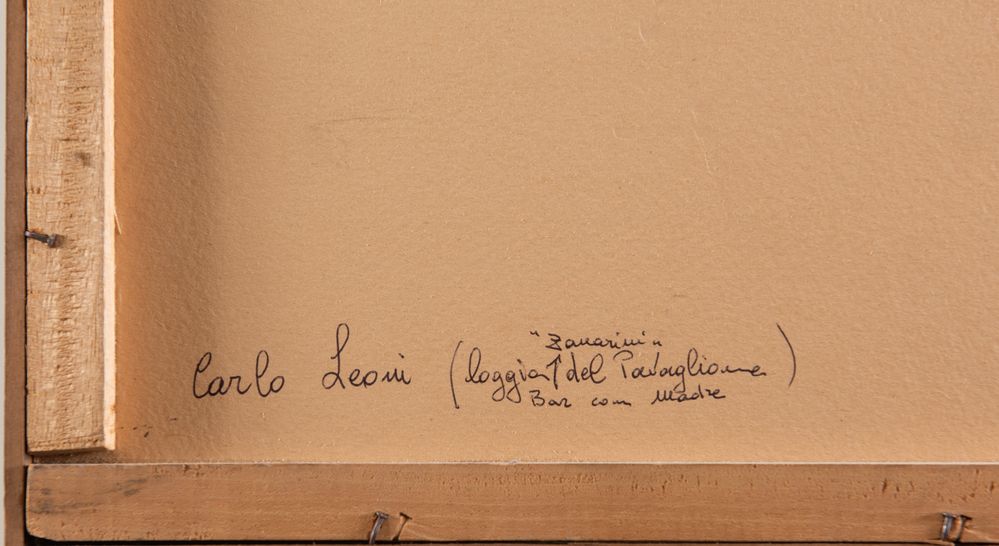 "Zanarini"
Carlo Leoni (loggia ↑ del Pavaglione)
Bar con Madre